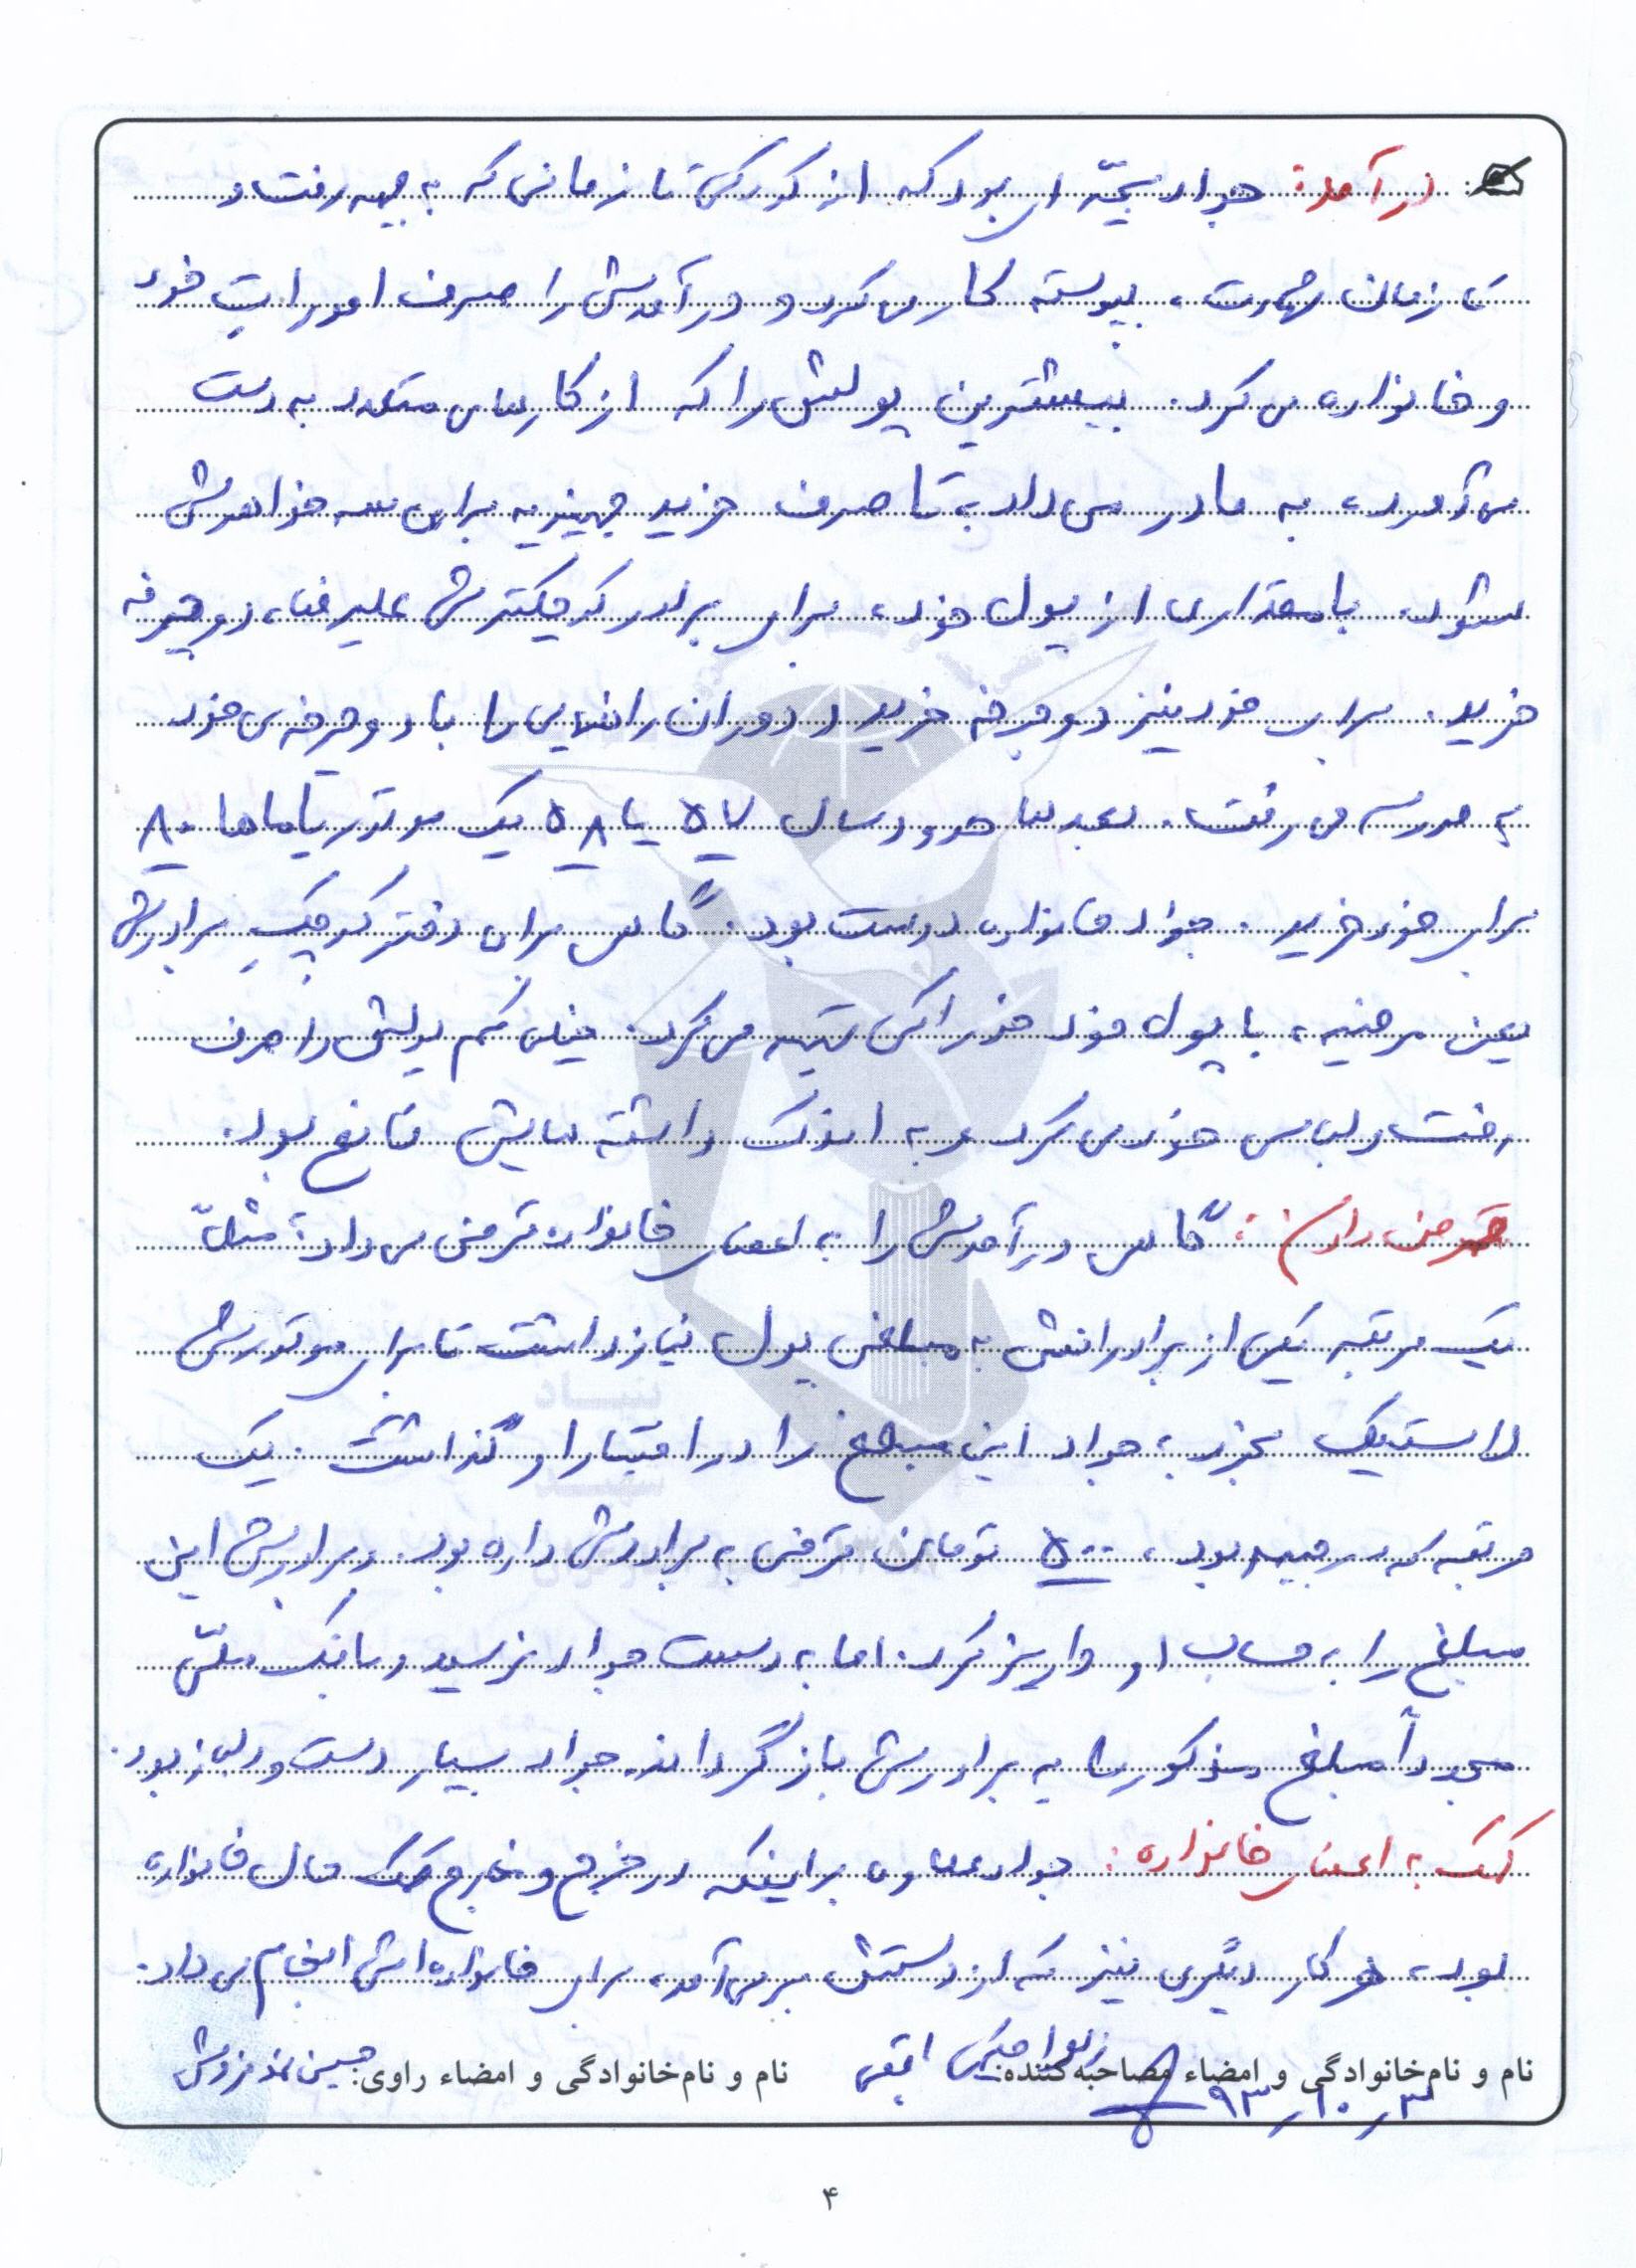 درآمد: جواد بچّه ای بود که از کودکی تا زمانی که به جبهه رفت و
تا زمان شهادت، پیوسته کار می کرد و درآمدش را صرف امورات خود
و خانواده می کرد. بیشترین پولش را که از کارهای متعدد به دست
می آورد، به مادر می داد تا صرف خرید جهیزیه برای سه خواهرش
شود. با مقداری از پول خود، برای برادر کوچکترش علیرضا، دوچرخه
خرید. برای خود نیز دوچرخه خرید و دوران راهنمایی را با دوچرخه ی خود
به مدرسه می رفت. بعدها هم در سال ۵۷ یا ۵۸ یک موتور یاماها ۸۰
برای خود خرید. جواد خانواده دوست بود. گاهی برای دختر کوچکِ برادرش
یعنی مرضیه، با پول خود خوراکی تهیه می کرد. خیلی کم پولش را صرف
رخت و لباس خود می کرد و به اندک داشته هایش قانع بود.
قرض دادن: گاهی درآمدش را به اعضای خانواده قرض می داد؛ مثلاً
یک مرتبه یکی از برادرانش به مبلغی پول نیاز داشت تا برای موتورش
لاستیک بخرد، جواد این مبلغ را در اختیار او گذاشت. یک
مرتبه که در جبهه بود، ۵۰۰ تومان قرضی به برادرش داده بود. و برادرش این
مبلغ را به حساب او واریز کرد. اما به دست جواد نرسید و بانک ملّی
مجدداً مبلغ مذکور را به برادرش بازگرداند. جواد بسیار دست و دلباز بود.
کمک به اعضای خانواده: جواد علاوه بر اینکه در خرج و مخارج کمک حال خانواده
بود، هر کار دیگری نیز که از دستش بر می آمد، برای خانواده اش انجام می داد.
نام و نام خانوادگی و امضاء مصاحبه کننده: نام و نام خانوادگی و امضاء راوی: حسین
۹۳/۱۰/۳
۴